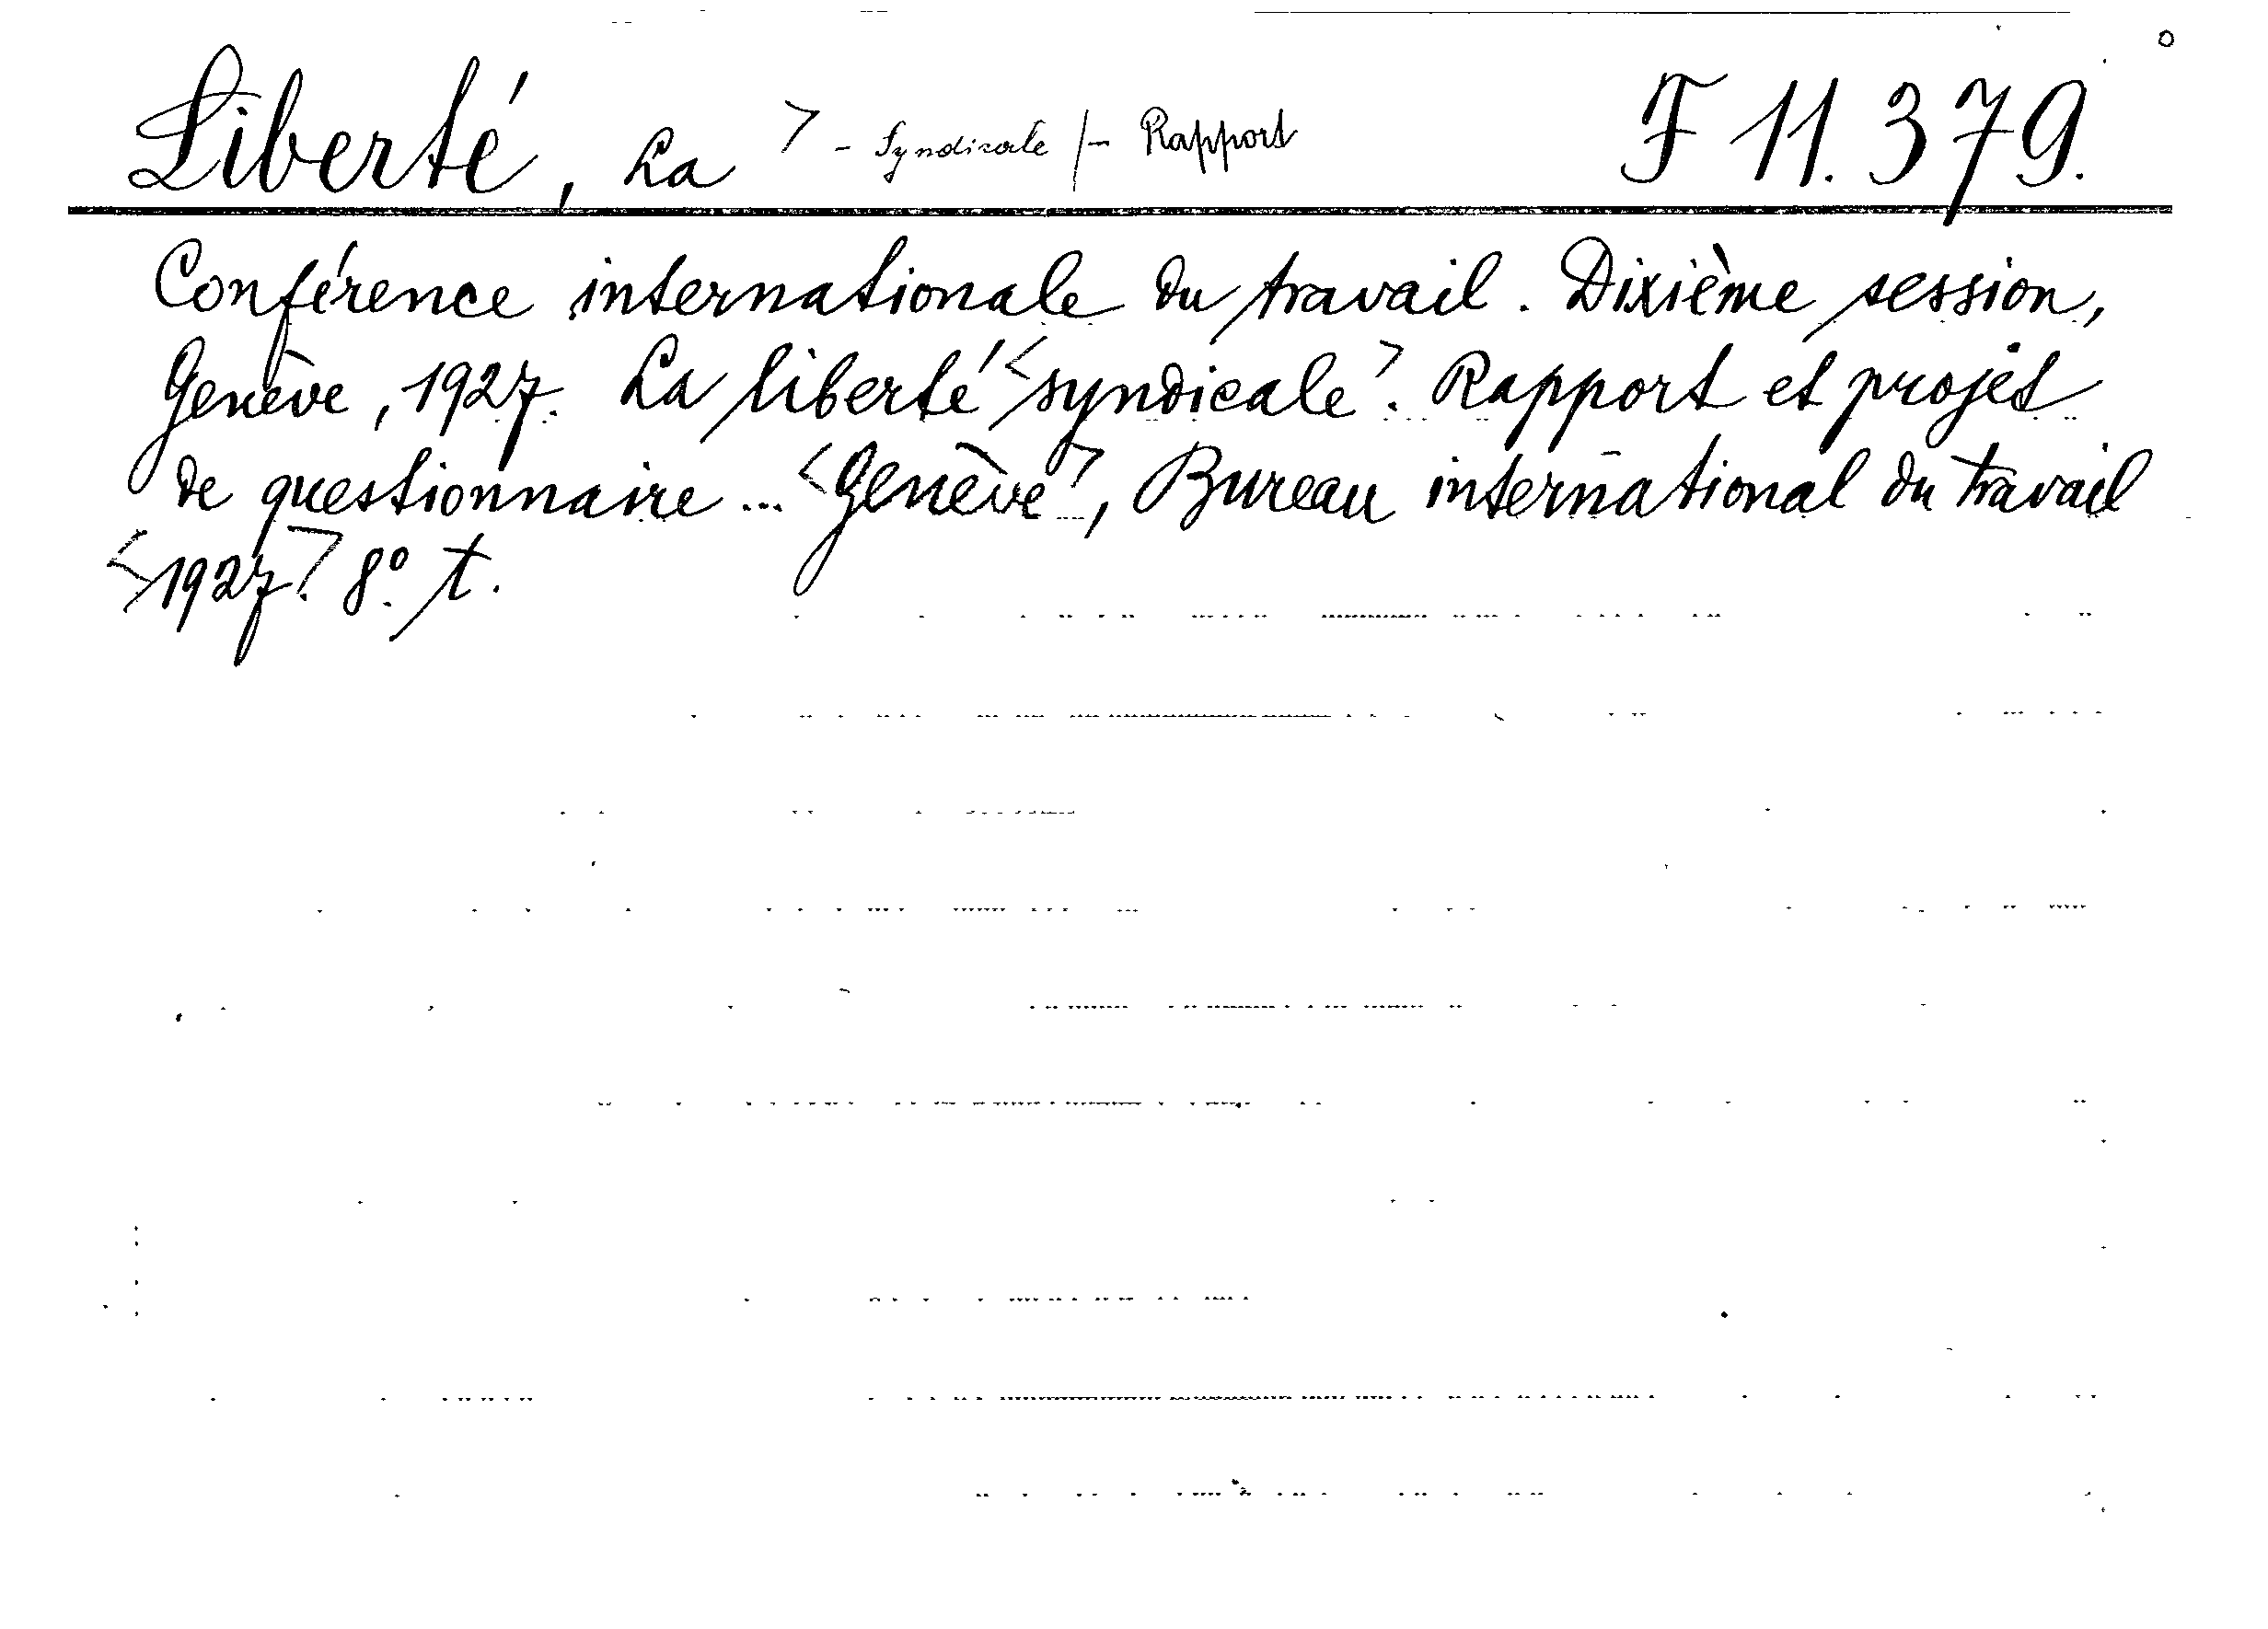 Liberté, La > - Syndicale /- Rapport F 11.379.
Conférence internationale du travail. Dixième session,
Genève, 1927. La liberté <syndicale>. Rapport et projet
de questionnaire ... <Genève>, Bureau international du travail
<1927.> 8°. t.